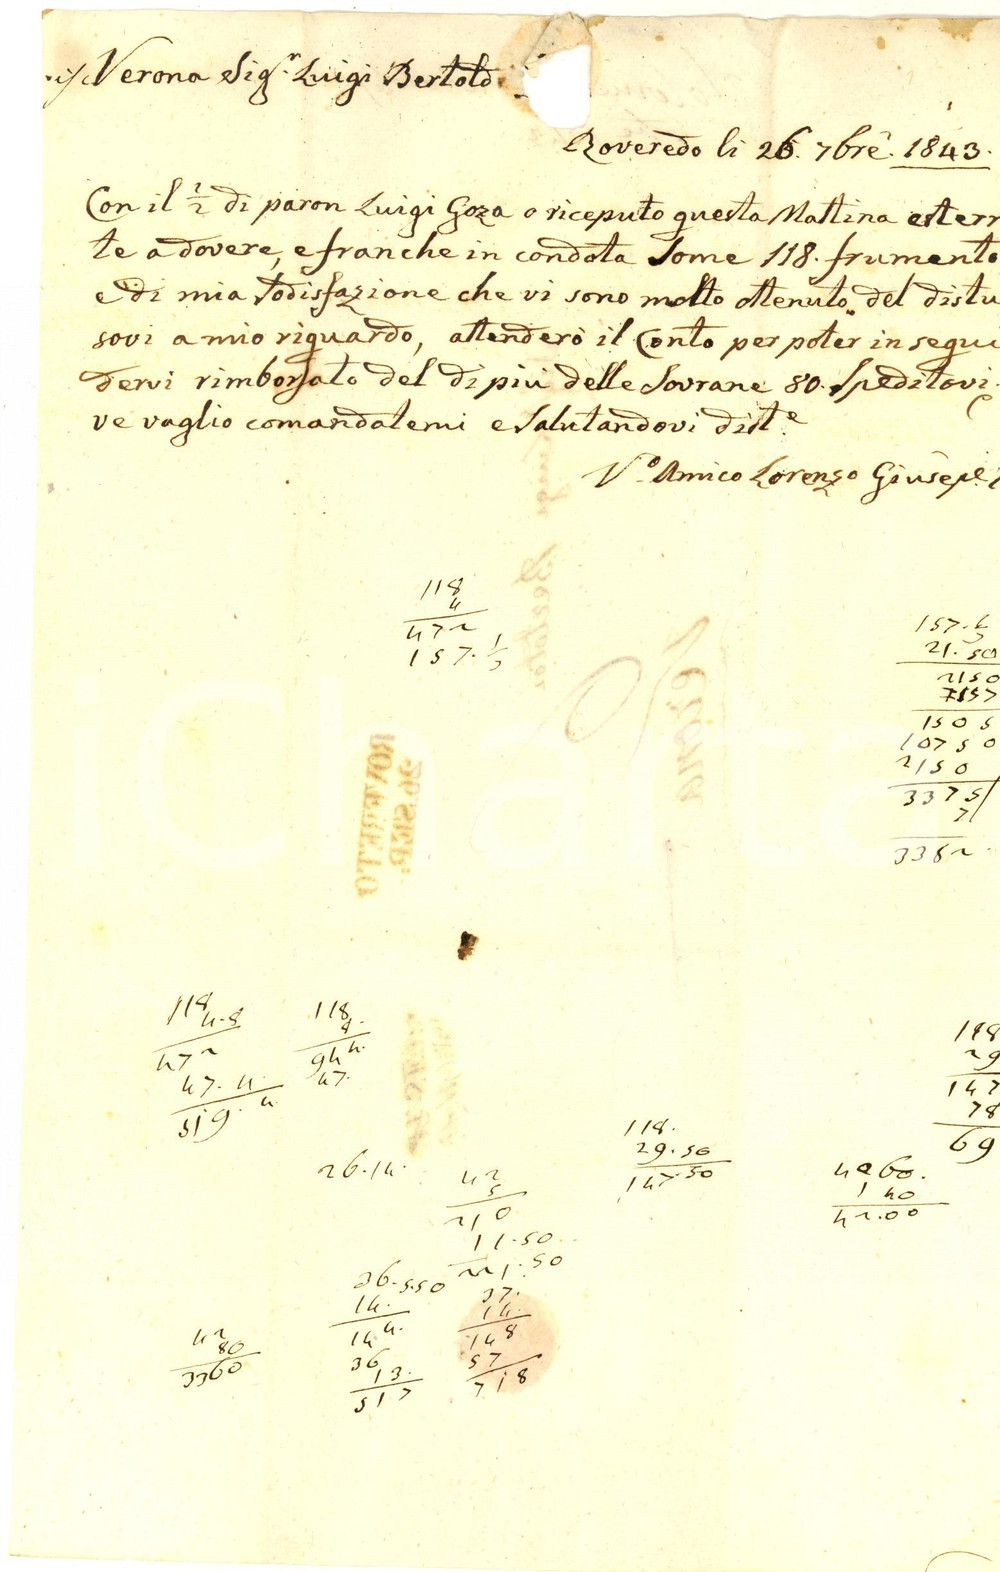 Verona Sig.r Luigi Bertold
Roveredo li 26. 7bre. 1843.
Con il ½ di paron Luigi Goza o riceputo questa Mattina esterr
te a dovere, e franche in condota Some 118. frumento
e di mia Sodisfazione che vi sono molto ottenuto del distu
sovi a mio riguardo, attenderò il Conto per poter in segui
dervi rimborsato del di più delle Sovrane 80. Speditovi.
ve vaglio comandatemi e Salutandovi dist.e
V.o Amico Lorenzo Giusepe
118
4
472
157. 1/3
157.
21. 50
2150
7157
1505
10750
2150
3375
7
3382
26. SEP.
ROVERETO
Luigi Bertold
Verona
118
4.8
472
47. 4.
519. 4
118
8.
944.
47.
118
29
147
78
69
118.
29.50
147.50
26.14.
42
5
210
11.50
221.50
4060.
1 40
42.00
36.5.50
14.
144.
36
13.
517
37.
14.
148
57
718
42
80
3360